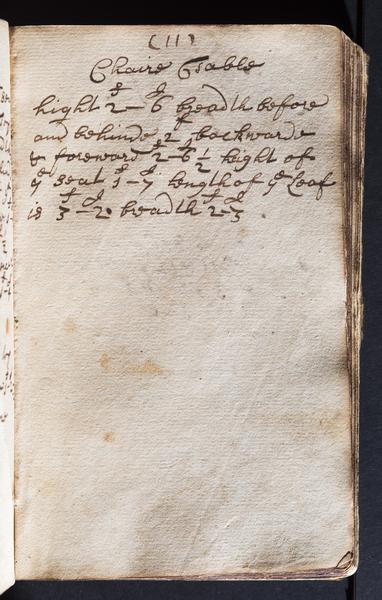 (11)
Chaire Table
hight 2 - 6 breadth before
and behinde 2 backwarde
& foreward 2 - 6 1/2 hight of
ye seat 1 - 7 length of ye Leaf
is 3 - 2 breadth 2 - 3